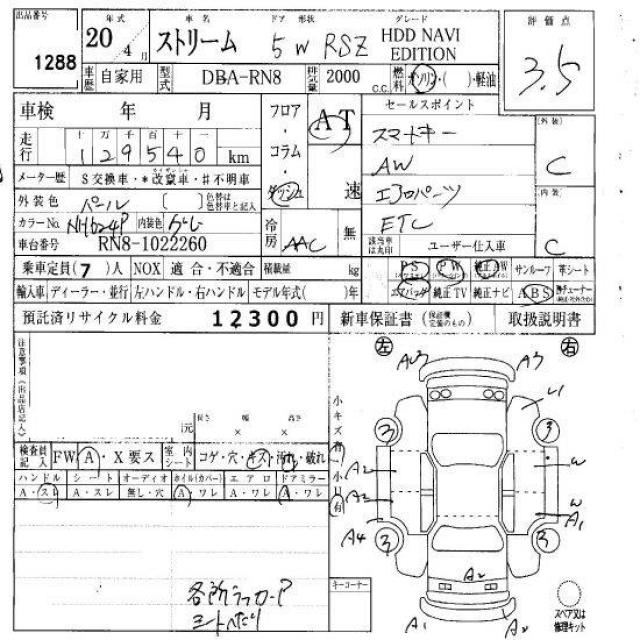 出品番号 年式 車名 ドア 形状 グレード 評価点
1288 20年 4月 ストリーム 5 W RSZ HDD NAVI EDITION 3.5
車歴 自家用 型式 DBA-RN8 排気量 2000 c.c. 燃料 ガソリン・( )・軽油
車検 年 月 フロア・コラム・ダッシュ AT 速 セールスポイント
走行 十万千百十一 129540 km
スマートキー
AW
エアロパーツ
ETC
外装 C
内装 C
メーター歴 S交換車・*改竄車・#不明車
外装色 パール ( ) 色替は色替車と記入
カラーNo. NH624P 内装色 グレー 冷房 AAC 無
車台番号 RN8-1022260 該当車は丸印 ユーザー仕入車
乗車定員(7)人 NOX 適合・不適合 積載量 kg PS PW 純正AW サンルーフ 革シート
輸入車 ディーラー・並行 左ハンドル・右ハンドル モデル年式( )年 エアバッグ 純正TV 純正ナビ ABS
預託済リサイクル料金 12300円 新車保証書(保証欄定義のもの) 取扱説明書
注意事項(出品店記入)
左 右
長さ 幅 高さ
冗 × ×
検査員記入 FW A・X要ス 室内シート コゲ・穴・キズ・汚れ・破れ
小キズ有 小凹有
ハンドル シート オーディオ ホイル(カバー) エアロ ドアミラー
A・スレ A・スレ 無し・穴 A・ワレ A・ワレ A・ワレ
A3
3 3
A2 W
A2 W
A1
A4
3 3
A2
A1
各所
キーコーナー
スペア又は
修理キット